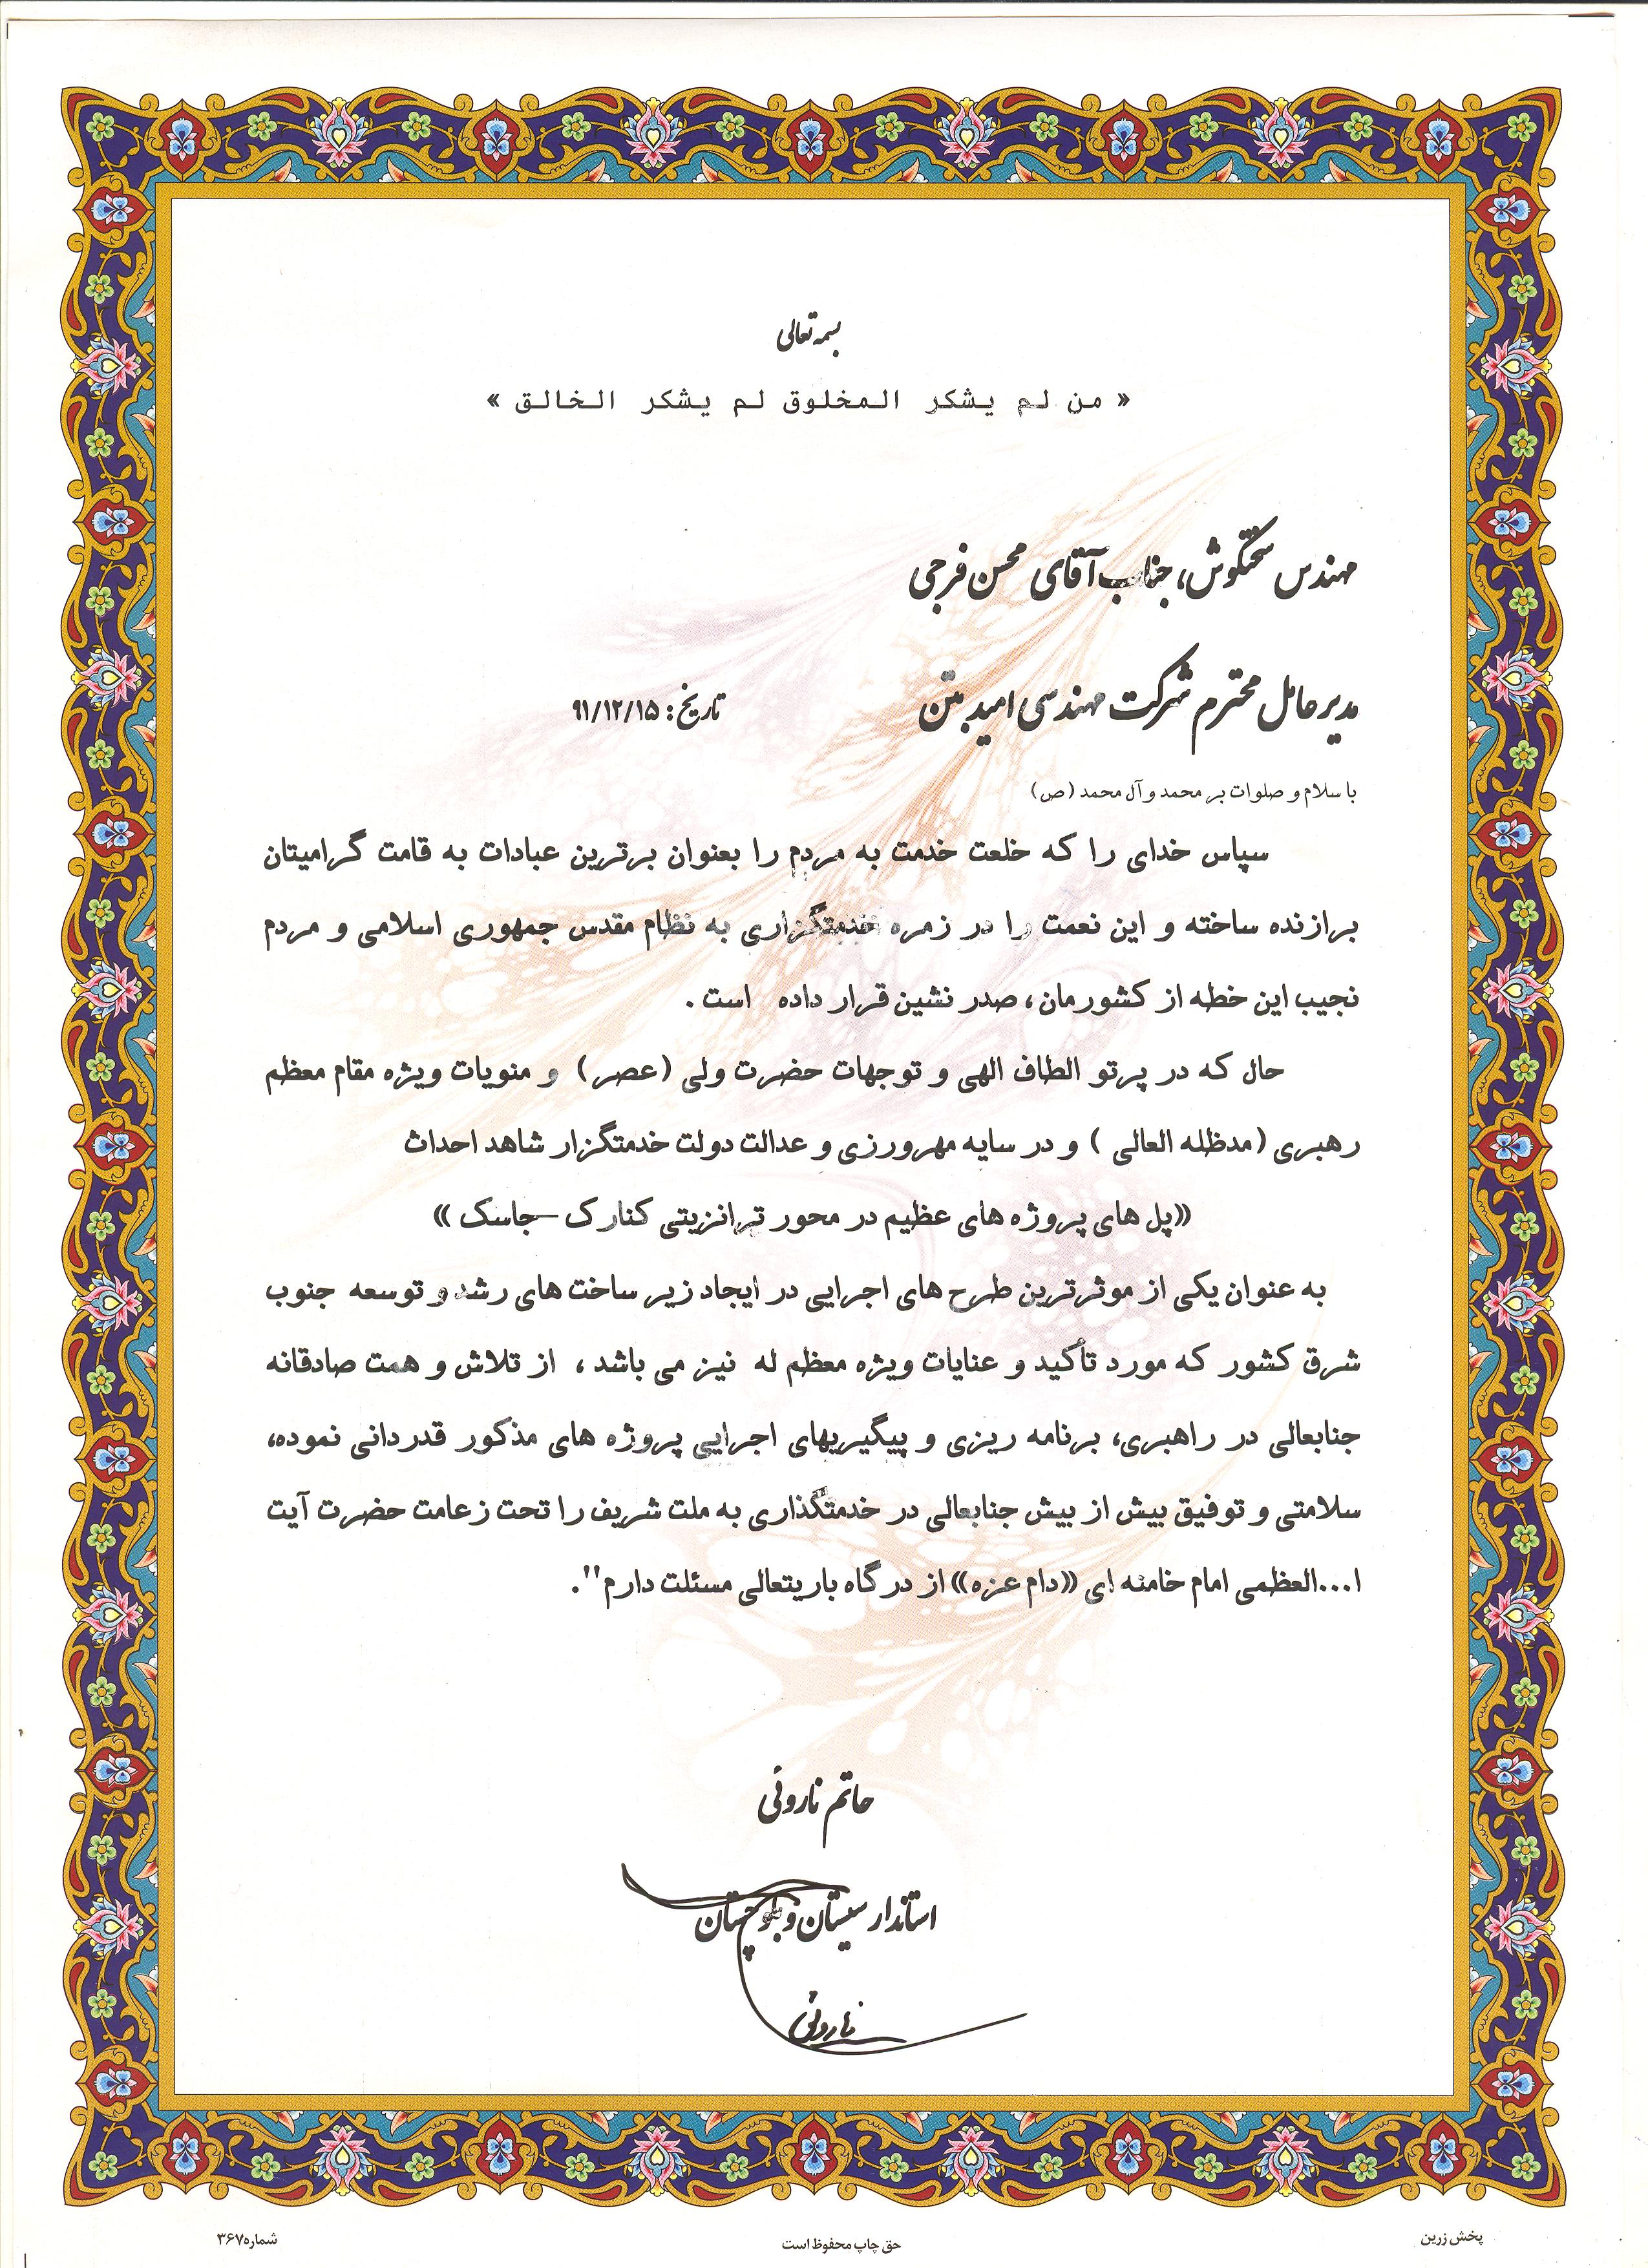 بسمه تعالی
« من لم یشکر المخلوق لم یشکر الخالق »
مهندس سختکوش، جناب آقای محسن فرجی
مدیرعامل محترم شرکت مهندسی امید بتن
تاریخ: ۹۱/۱۲/۱۵
با سلام و صلوات بر محمد و آل محمد (ص)
سپاس خدای را که خلعت خدمت به مردم را بعنوان برترین عبادات به قامت گرامیتان
برازنده ساخته و این نعمت را در زمره خدمتگزاری به نظام مقدس جمهوری اسلامی و مردم
نجیب این خطه از کشورمان، صدر نشین قرار داده است .
حال که در پرتو الطاف الهی و توجهات حضرت ولی (عصر) و منویات ویژه مقام معظم
رهبری (مدظله العالی ) و در سایه مهرورزی و عدالت دولت خدمتگزار شاهد احداث
«پل های پروژه های عظیم در محور ترانزیتی کنارک –جاسک »
به عنوان یکی از موثرترین طرح های اجرایی در ایجاد زیر ساخت های رشد و توسعه جنوب
شرق کشور که مورد تأکید و عنایات ویژه معظم له نیز می باشد ، از تلاش و همت صادقانه
جنابعالی در راهبری، برنامه ریزی و پیگیریهای اجرایی پروژه های مذکور قدردانی نموده،
سلامتی و توفیق بیش از بیش جنابعالی در خدمتگذاری به ملت شریف را تحت زعامت حضرت آیت
ا...العظمی امام خامنه ای «دام عزه» از درگاه باریتعالی مسئلت دارم".
حاتم ناروئی
استاندار سیستان و بلوچستان
ناروئی
پخش زرین
حق چاپ محفوظ است
شماره ۳۶۷